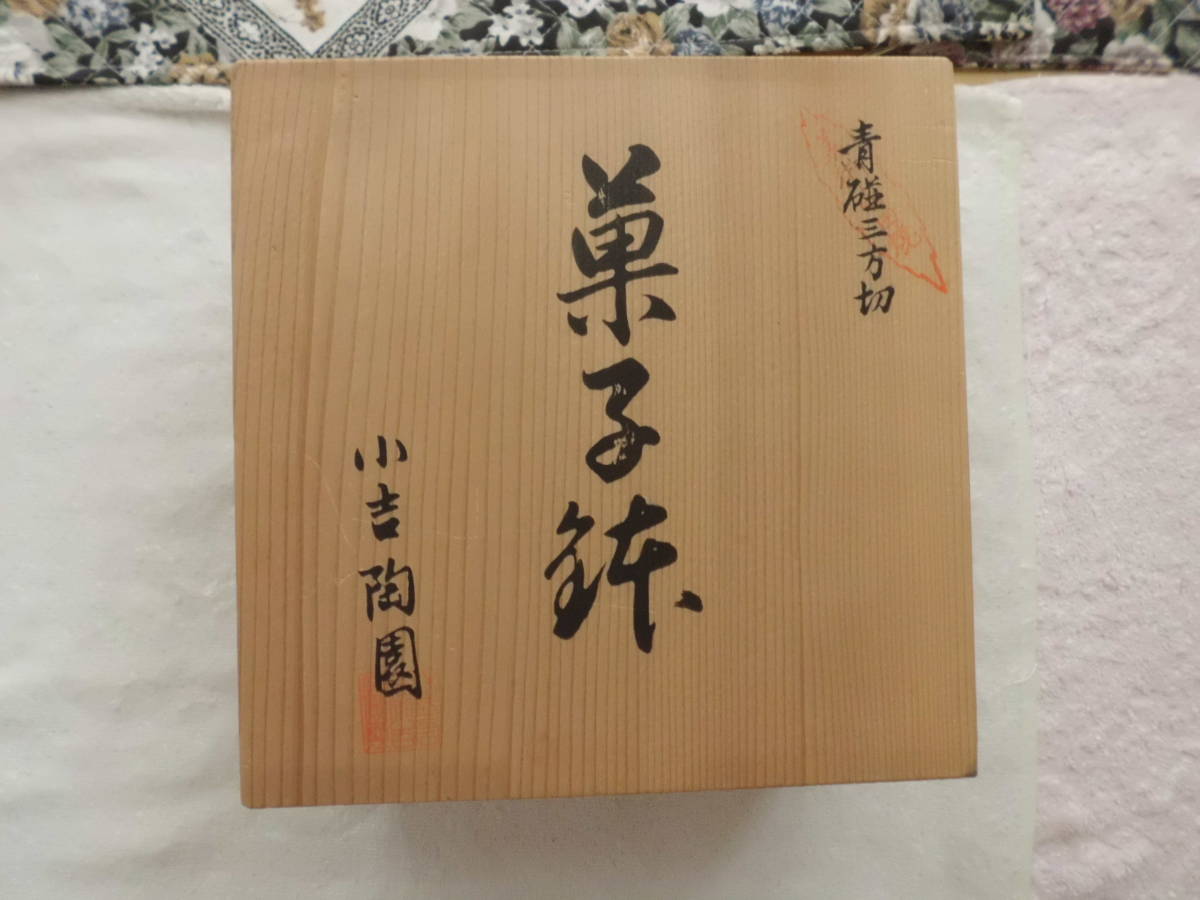 青磁三方切
菓子鉢
小吉陶園